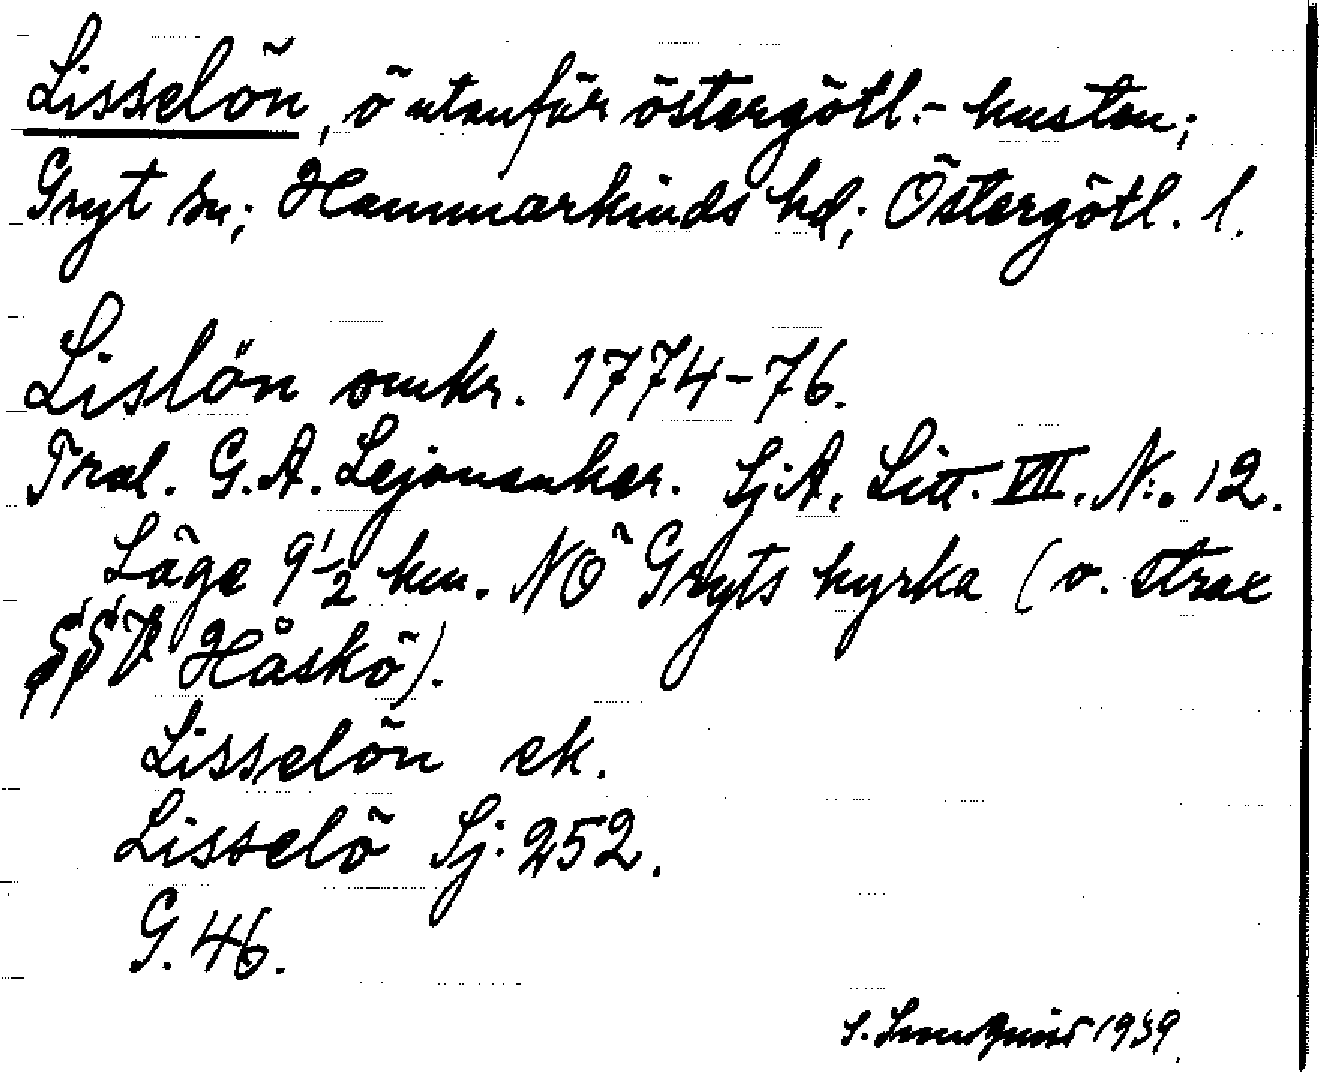 Lisselön, ö utanför östergötl.- kusten;
Gryt sn; Hammarkinds hd; Östergötl. l.
Lislön omkr. 1774-76.
Tral. G.A. Lejonanker. SjA, Litt. VII, N:o 12.
Läge 9 1/2 km. NÖ Gryts kyrka (v. strax
V Håskö).
Lisselön ek.
Lisselö Sj: 252.
G. 46.
S. 1939